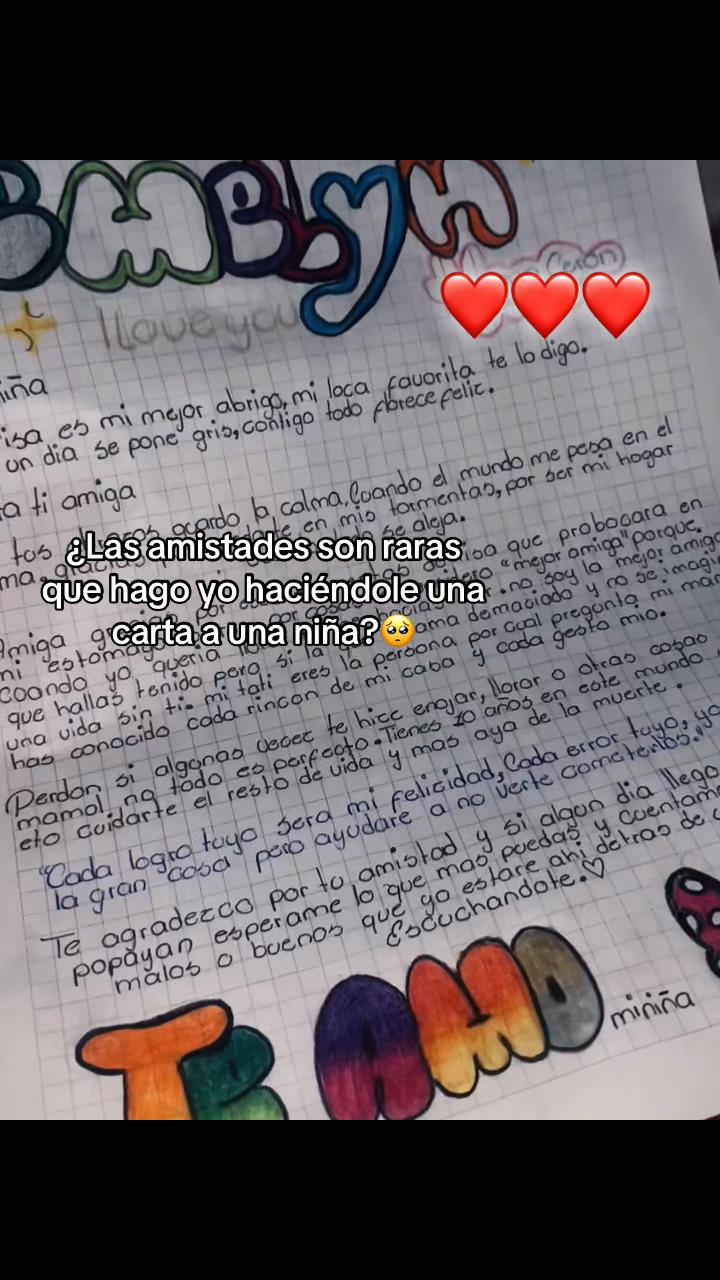 I love you
iña
isa es mi mejor abrigo, mi loca favorita te lo digo.
un dia se pone gris, contigo todo florece felic.
a ti amiga
tus acordo la calma. Cuando el mundo me pesa en el
ma. en mis tormentas, por ser mi hogar
se aleja.
¿Las amistades son raras
que hago yo haciéndole una
carta a una niña?🥺
que probocara en
Amiga "mejor amiga" porque.
mi estomago no soy la mejor amiga
Coando yo queria ama demaciado y no se imagi
que hallas tenido pero si la persona por cual pregunta mi mam
una vida sin ti. mi tati eres la
has conocido cada rincon de mi casa y cada gesto mio.
Perdon si algunas veces te hice enojar, llorar o otras cosas
mamol, no todo es perfecto. Tienes 10 años en este mundo
eto cuidarte el resto de vida y mas aya de la muerte.
"Cada logro tuyo sera mi felicidad, Cada error tuyo, yo
la gran cosa pero ayudare a no verte cometerlos."
Te agradezco por tu amistad y si algun dia llego
popayan esperame lo que mas puedas y cuentame
malos o buenos que yo estare ahi detras de
Escuchandote.♡
TE AMO
miniña